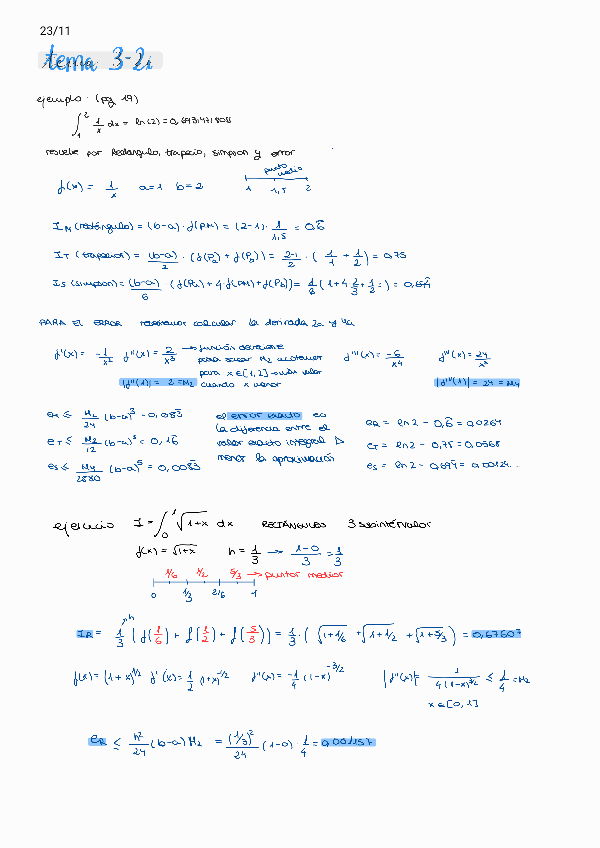 23/11
tema 3-2i
ejemplo (pg 19)
∫₁² 1/x dx = ln(2) = 0,6931471808
resuelve por Rectangulo, trapecio, simpson y error
f(x) = 1/x a=1 b=2
punto medio
1 1,5 2
I_M (rectángulo) = (b-a) · f(PM) = (2-1) · 1/1,5 = 0,6̄
I_T (trapecio) = (b-a)/2 · (f(Pa) + f(Pb)) = 2-1/2 · (1/1 + 1/2) = 0,75
I_S (simpson) = (b-a)/6 (f(Pa) + 4 f(PM) + f(Pb)) = 1/6 (1 + 4 2/3 + 1/2 =) = 0,694̄
PARA EL ERROR calcular la derivada 2a y 4a
f'(x) = -1/x² f''(x) = 2/x³ → función decreciente f'''(x) = -6/x⁴ f⁗(x) = 24/x⁵
para sacar M₂
para x∈[1,2]
|f''(1)| = 2 = M₂ cuando x menor |f⁗(1)| = 24 = M₄
e_R ≤ M₂/24 (b-a)³ = 0,083̄
e_T ≤ M₂/12 (b-a)³ = 0,16̄
e_S ≤ M₄/2880 (b-a)⁵ = 0,0083̄
el error exacto es
la diferencia entre el
valor exacto integral
menos la aproximación
e_R = ln2 - 0,6̄ = 0,0264
e_T = ln2 - 0,75 = 0,0568
e_S = ln2 - 0,694̄ = 0,00124...
ejercicio I = ∫₀¹ √1+x dx RECTÁNGULOS 3 subintervalos
f(x) = √1+x h = 1/3 → 1-0/3 = 1/3
1/6 1/2 5/3 → puntos medios
0 1/3 2/6 1
I_R = 1/3 (f(1/6) + f(1/2) + f(5/3)) = 1/3 · (√1+1/6 + √1+1/2 + √1+5/3) = 0,67607
f(x) = (1+x)^1/2 f'(x) = 1/2 (1+x)^-1/2 f''(x) = -1/4 (1-x)^-3/2 |f''(x)| = 1/4(1-x)^3/2 ≤ 1/4 = M₂
x∈[0,1]
e_R ≤ h²/24 (b-a) M₂ = (1/3)²/24 (1-0) · 1/4 = 0,001157